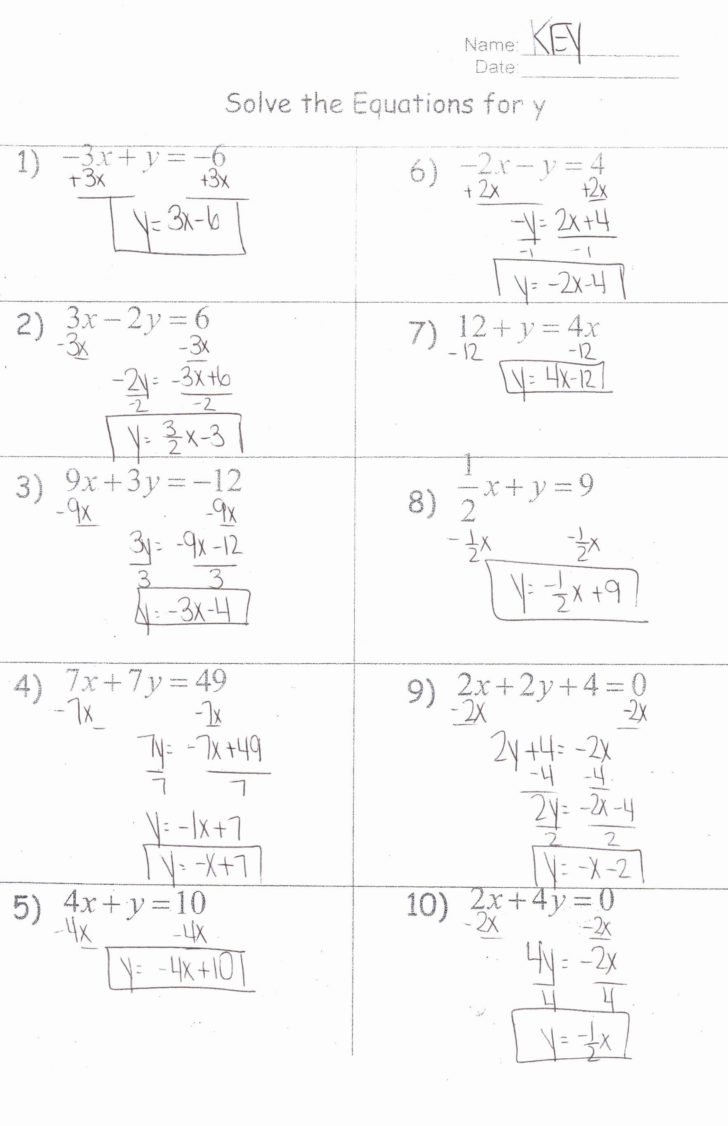 Name: KEY
Date:
Solve the Equations for y
1) -3x + y = -6
+3x +3x
y = 3x-6
2) 3x - 2y = 6
-3x -3x
-2y = -3x+6
-2 -2
y = 3/2 x - 3
3) 9x + 3y = -12
-9x -9x
3y = -9x -12
3 3
y = -3x-4
4) 7x + 7y = 49
-7x -7x
7y = -7x+49
7 7
y = -1x+7
y = -x+7
5) 4x + y = 10
-4x -4x
y = -4x+10
6) -2x - y = 4
+2x +2x
-y = 2x+4
-1 -1
y = -2x-4
7) 12 + y = 4x
-12 -12
y = 4x-12
8) 1/2 x + y = 9
-1/2 x -1/2 x
y = -1/2 x +9
9) 2x + 2y + 4 = 0
-2x -2x
2y+4 = -2x
-4 -4
2y = -2x-4
2 2
y = -x-2
10) 2x + 4y = 0
-2x -2x
4y = -2x
4 4
y = -1/2 x